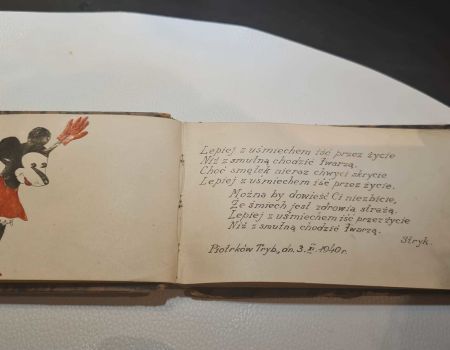 Lepiej z uśmiechem iść przez życie
Niż z smutną chodzić twarzą.
Choć smętek nieraz chwyci skrycie
Lepiej z uśmiechem iść przez życie.
Można by dowieść Ci niezbicie,
Że śmiech jest zdrowia strażą.
Lepiej z uśmiechem iść przez życie
Niż z smutną chodzić twarzą.
Stryk.
Piotrków Tryb., dn. 3. 1940 r.